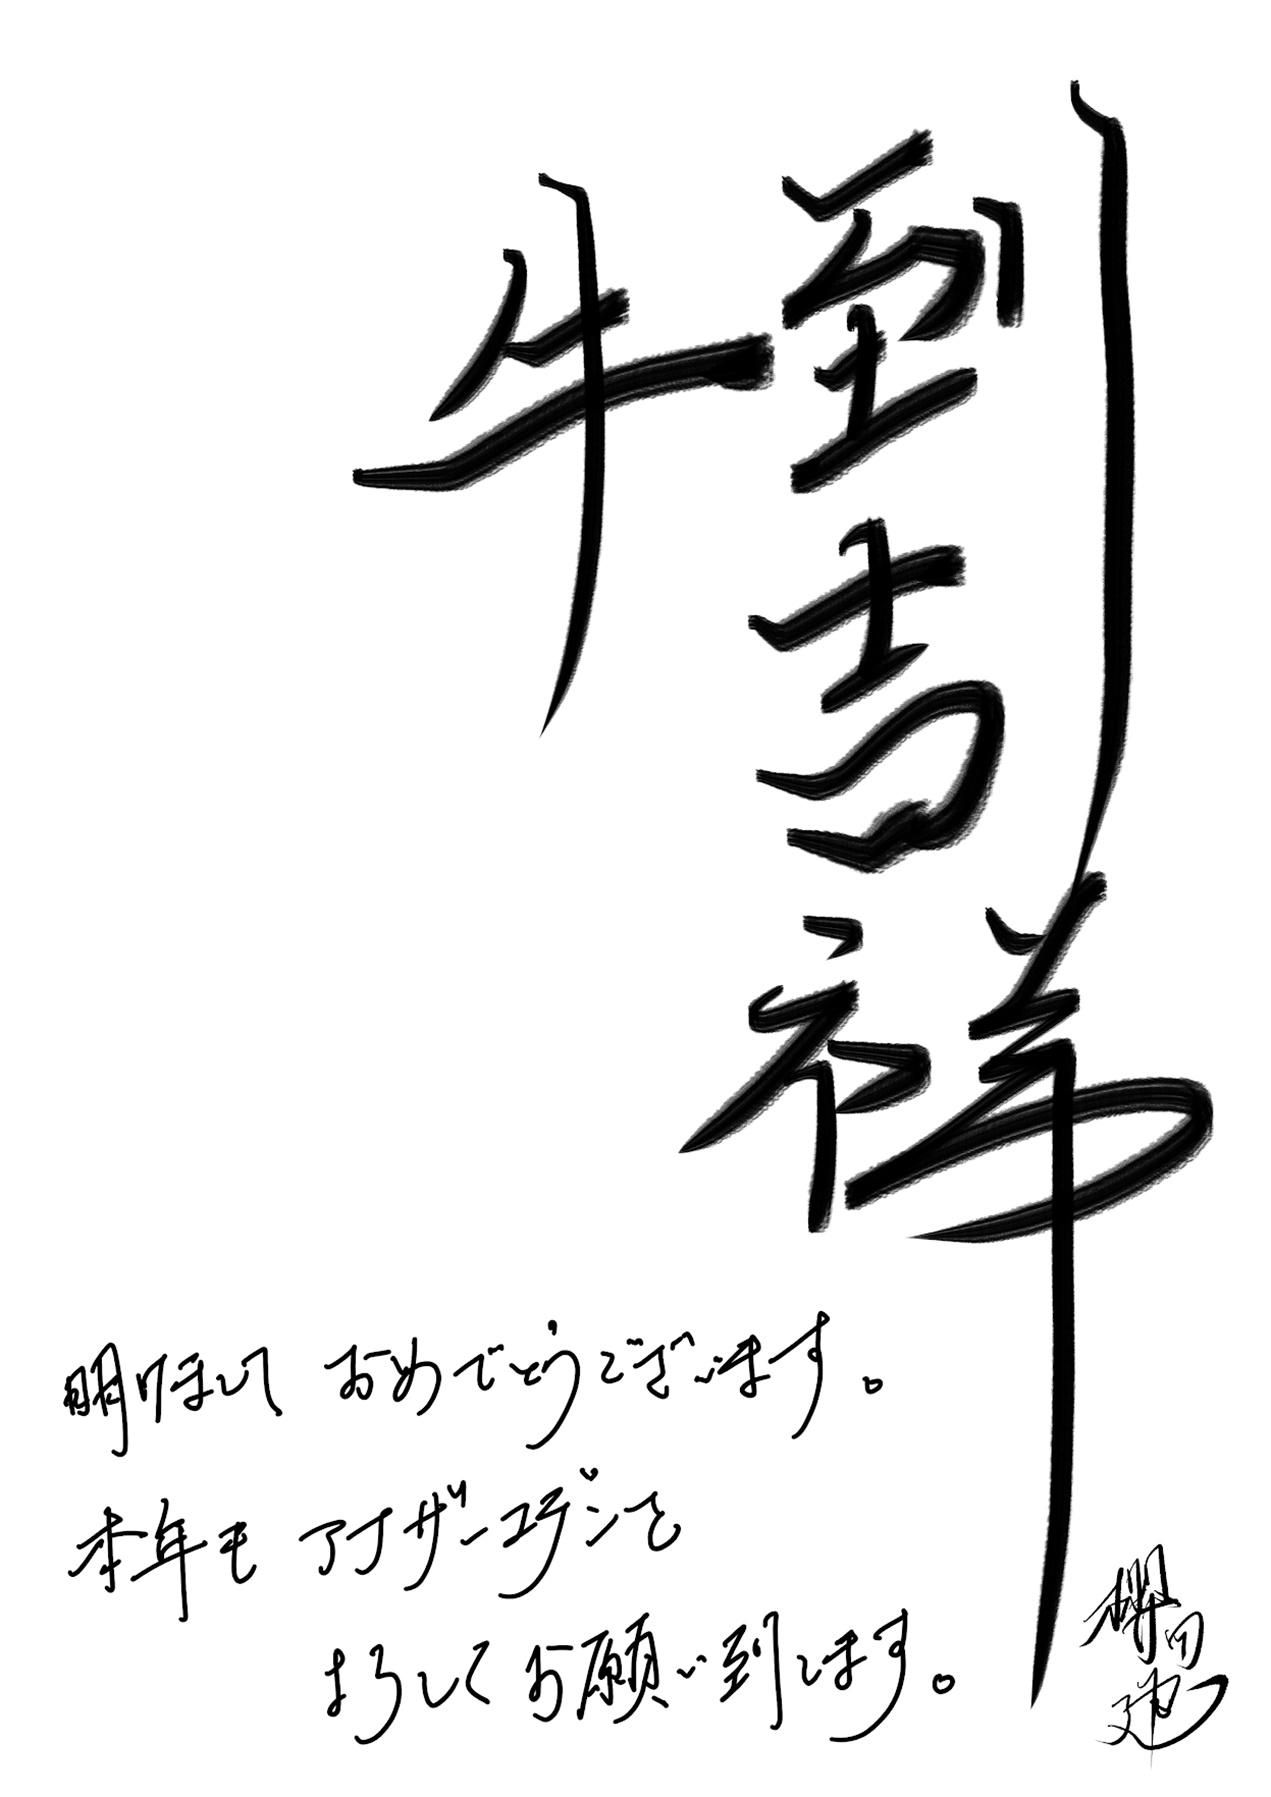 牛到吉祥
明けまして おめでとうございます。
本年も アナザーエデンを
よろしくお願い到します。